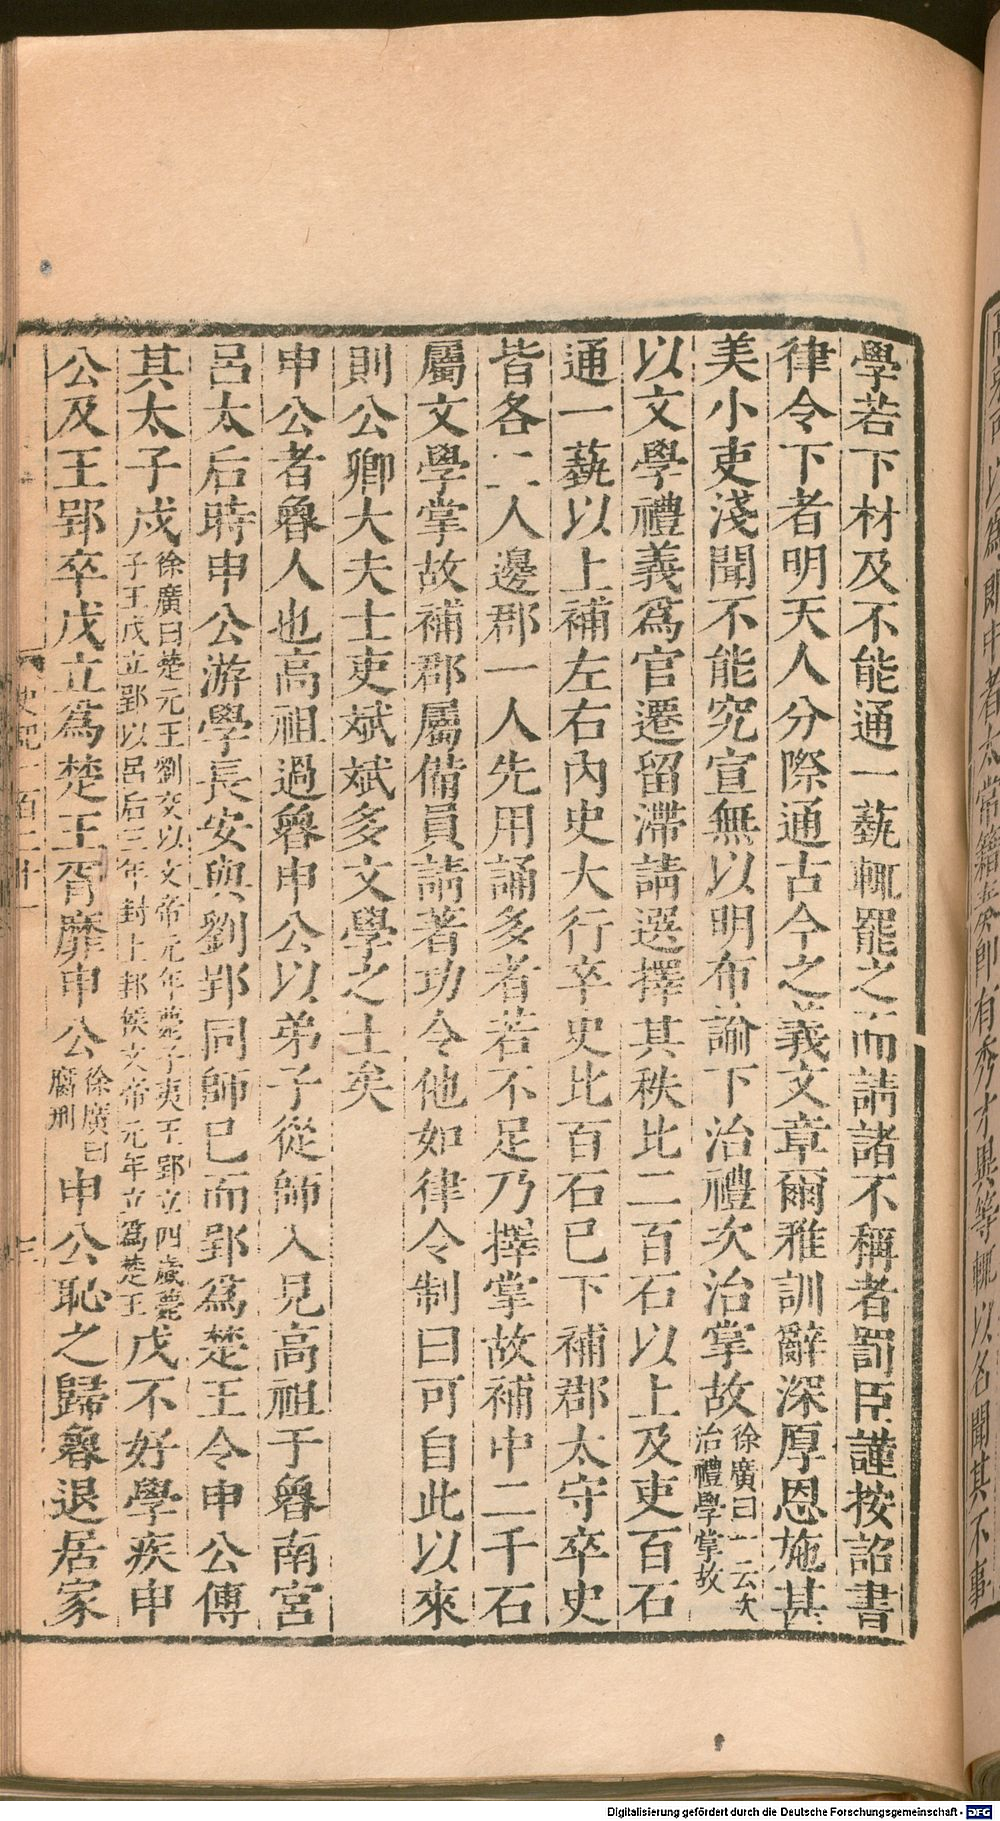 學若下材及不能通一藝輒罷之而請諸不稱者罰臣謹按詔書
律令下者明天人分際通古今之義文章爾雅訓辭深厚恩施甚
美小吏淺聞不能究宣無以明布諭下治禮次治掌故徐廣曰一云次治禮學掌故
以文學禮義爲官遷留滯請選擇其秩比二百石以上及吏百石
通一藝以上補左右內史大行卒史比百石已下補郡太守卒史
皆各二人邊郡一人先用誦多者若不足乃擇掌故補中二千石
屬文學掌故補郡屬備員請著功令他如律令制曰可自此以來
則公卿大夫士吏斌斌多文學之士矣
申公者魯人也高祖過魯申公以弟子從師入見高祖于魯南宮
呂太后時申公游學長安與劉郢同師已而郢爲楚王令申公傅
其太子戊徐廣曰楚元王劉交以文帝元年薨子夷王郢立四歲薨子王戊立郢以呂后二年封上邳侯文帝元年立爲楚王戊不好學疾申
公及王郢卒戊立爲楚王胥靡申公徐廣曰腐刑申公恥之歸魯退居家
史記一百二十一
三
者太常籍奏卽有秀才異等輒以名聞其不事
Digitalisierung gefördert durch die Deutsche Forschungsgemeinschaft - DFG